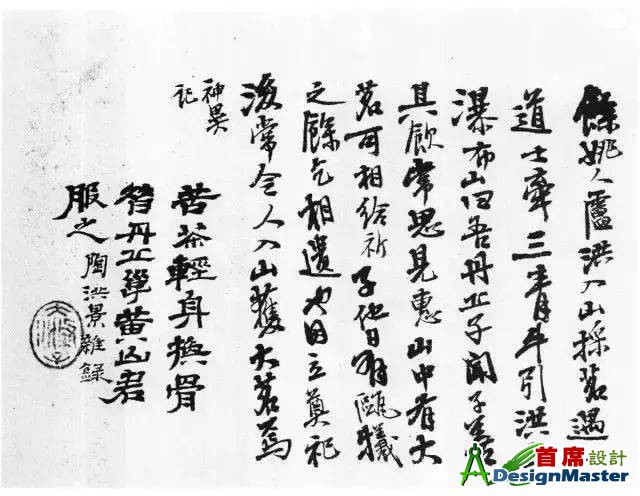 餘姚人盧洪入山採茗遇
道士牽三青牛引洪
瀑布山曰吾丹丘子聞子善
具飲常思見惠山中有大
茗可相給祈子他日有甌犧
之餘乞相遺也因立奠祀
後常令人入山獲大茗焉
神異
記
苦茶輕身換骨
昔丹丘黃山君
服之 陶洪景雜錄
首席·設計
DesignMaster